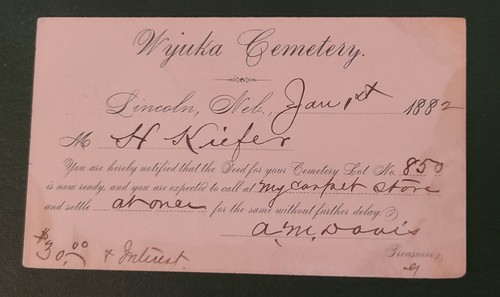 Wyuka Cemetery.
Lincoln, Neb., Jan 1st 1882
M H Kiefer
You are hereby notified that the Deed for your Cemetery Lot No. 850
is now ready, and you are expected to call at my carpet store
and settle at once for the same without further delay.
A. M. Davis
Treasurer
$30.00 & Interest.